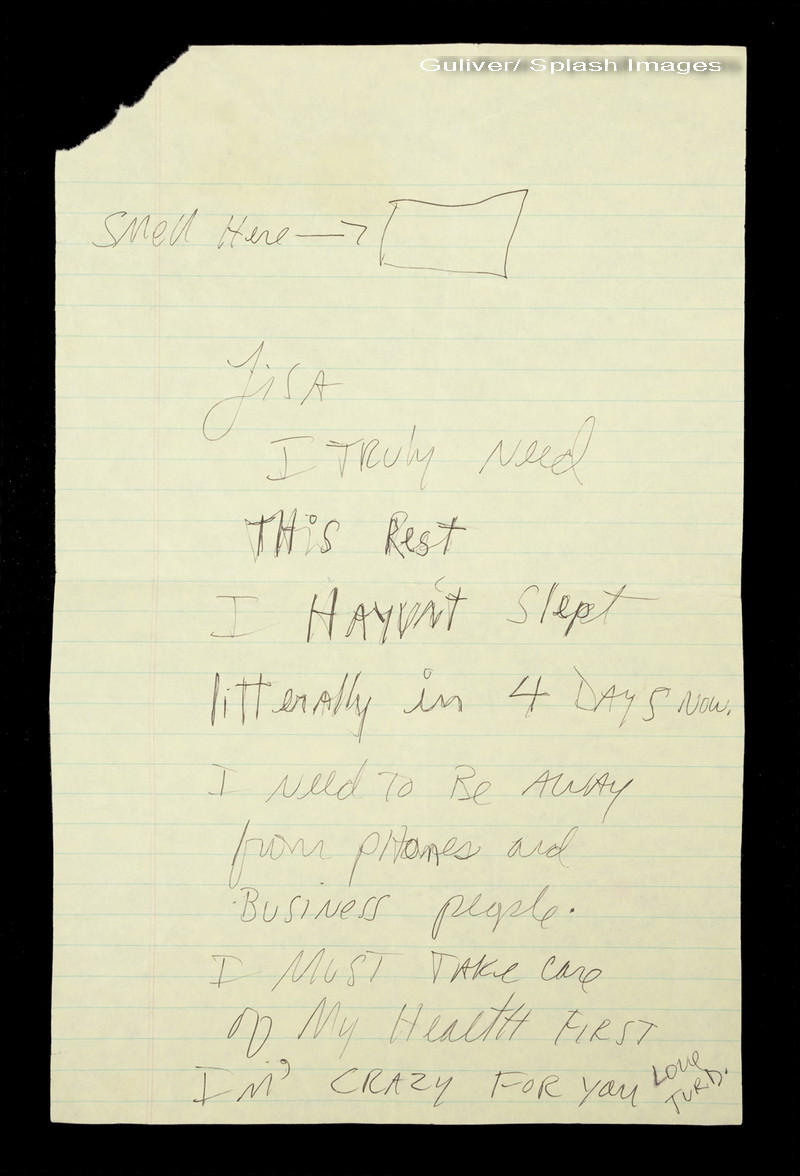 Guliver/ Splash Images
Smell Here
LisA
I TRuly Need
THis Rest
I HAVVN't Slept
littерally in 4 DAYS Now.
I Need To Be AWAy
from pHones and
BUSINess people.
I MuST TAKe care
of My HealtH FIRST
I M' CRAZY FOR you Love
TURD.